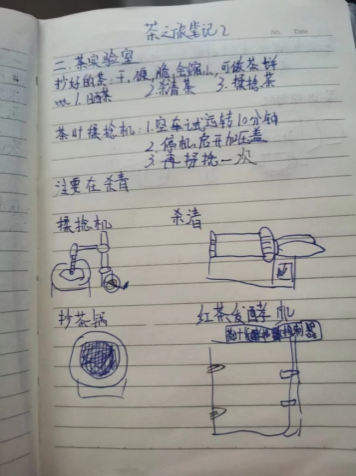 茶之旅笔记2
No.
Date
三.茶实验室
炒好的茶:干,硬,脆,会缩小,可做茶饼
1.日晒茶 2.杀青茶 3.揉捻茶
茶叶揉捻机:1.空车试运转10分钟
2.停机,启开加压盖
3.再揉捻一次
注重在杀青
揉捻机 杀青
炒茶锅 红茶发酵机